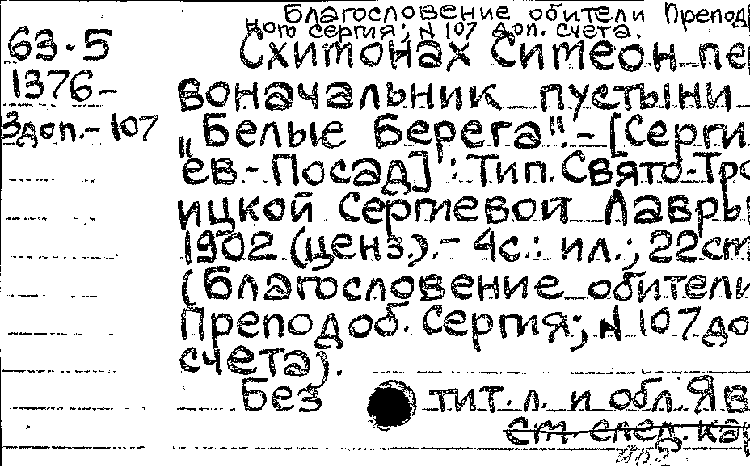 Благословение обители Препод
ного Сергия; N 107 доп. счета.
63-5
Схимонах Симеон пе
1376-
воначальник пустыни
3доп.-107
„Белые Берега".- [Серги
ев.-Посад]: Тип. Свято-Тро
ицкой Сергиевой Лавры
1902 (ценз.).- 4с.: ил.; 22см
(Благословение обители
Преподоб. Сергия; N 107 до
счета).
Без тит. л. и обл. Яв
см. след. кар